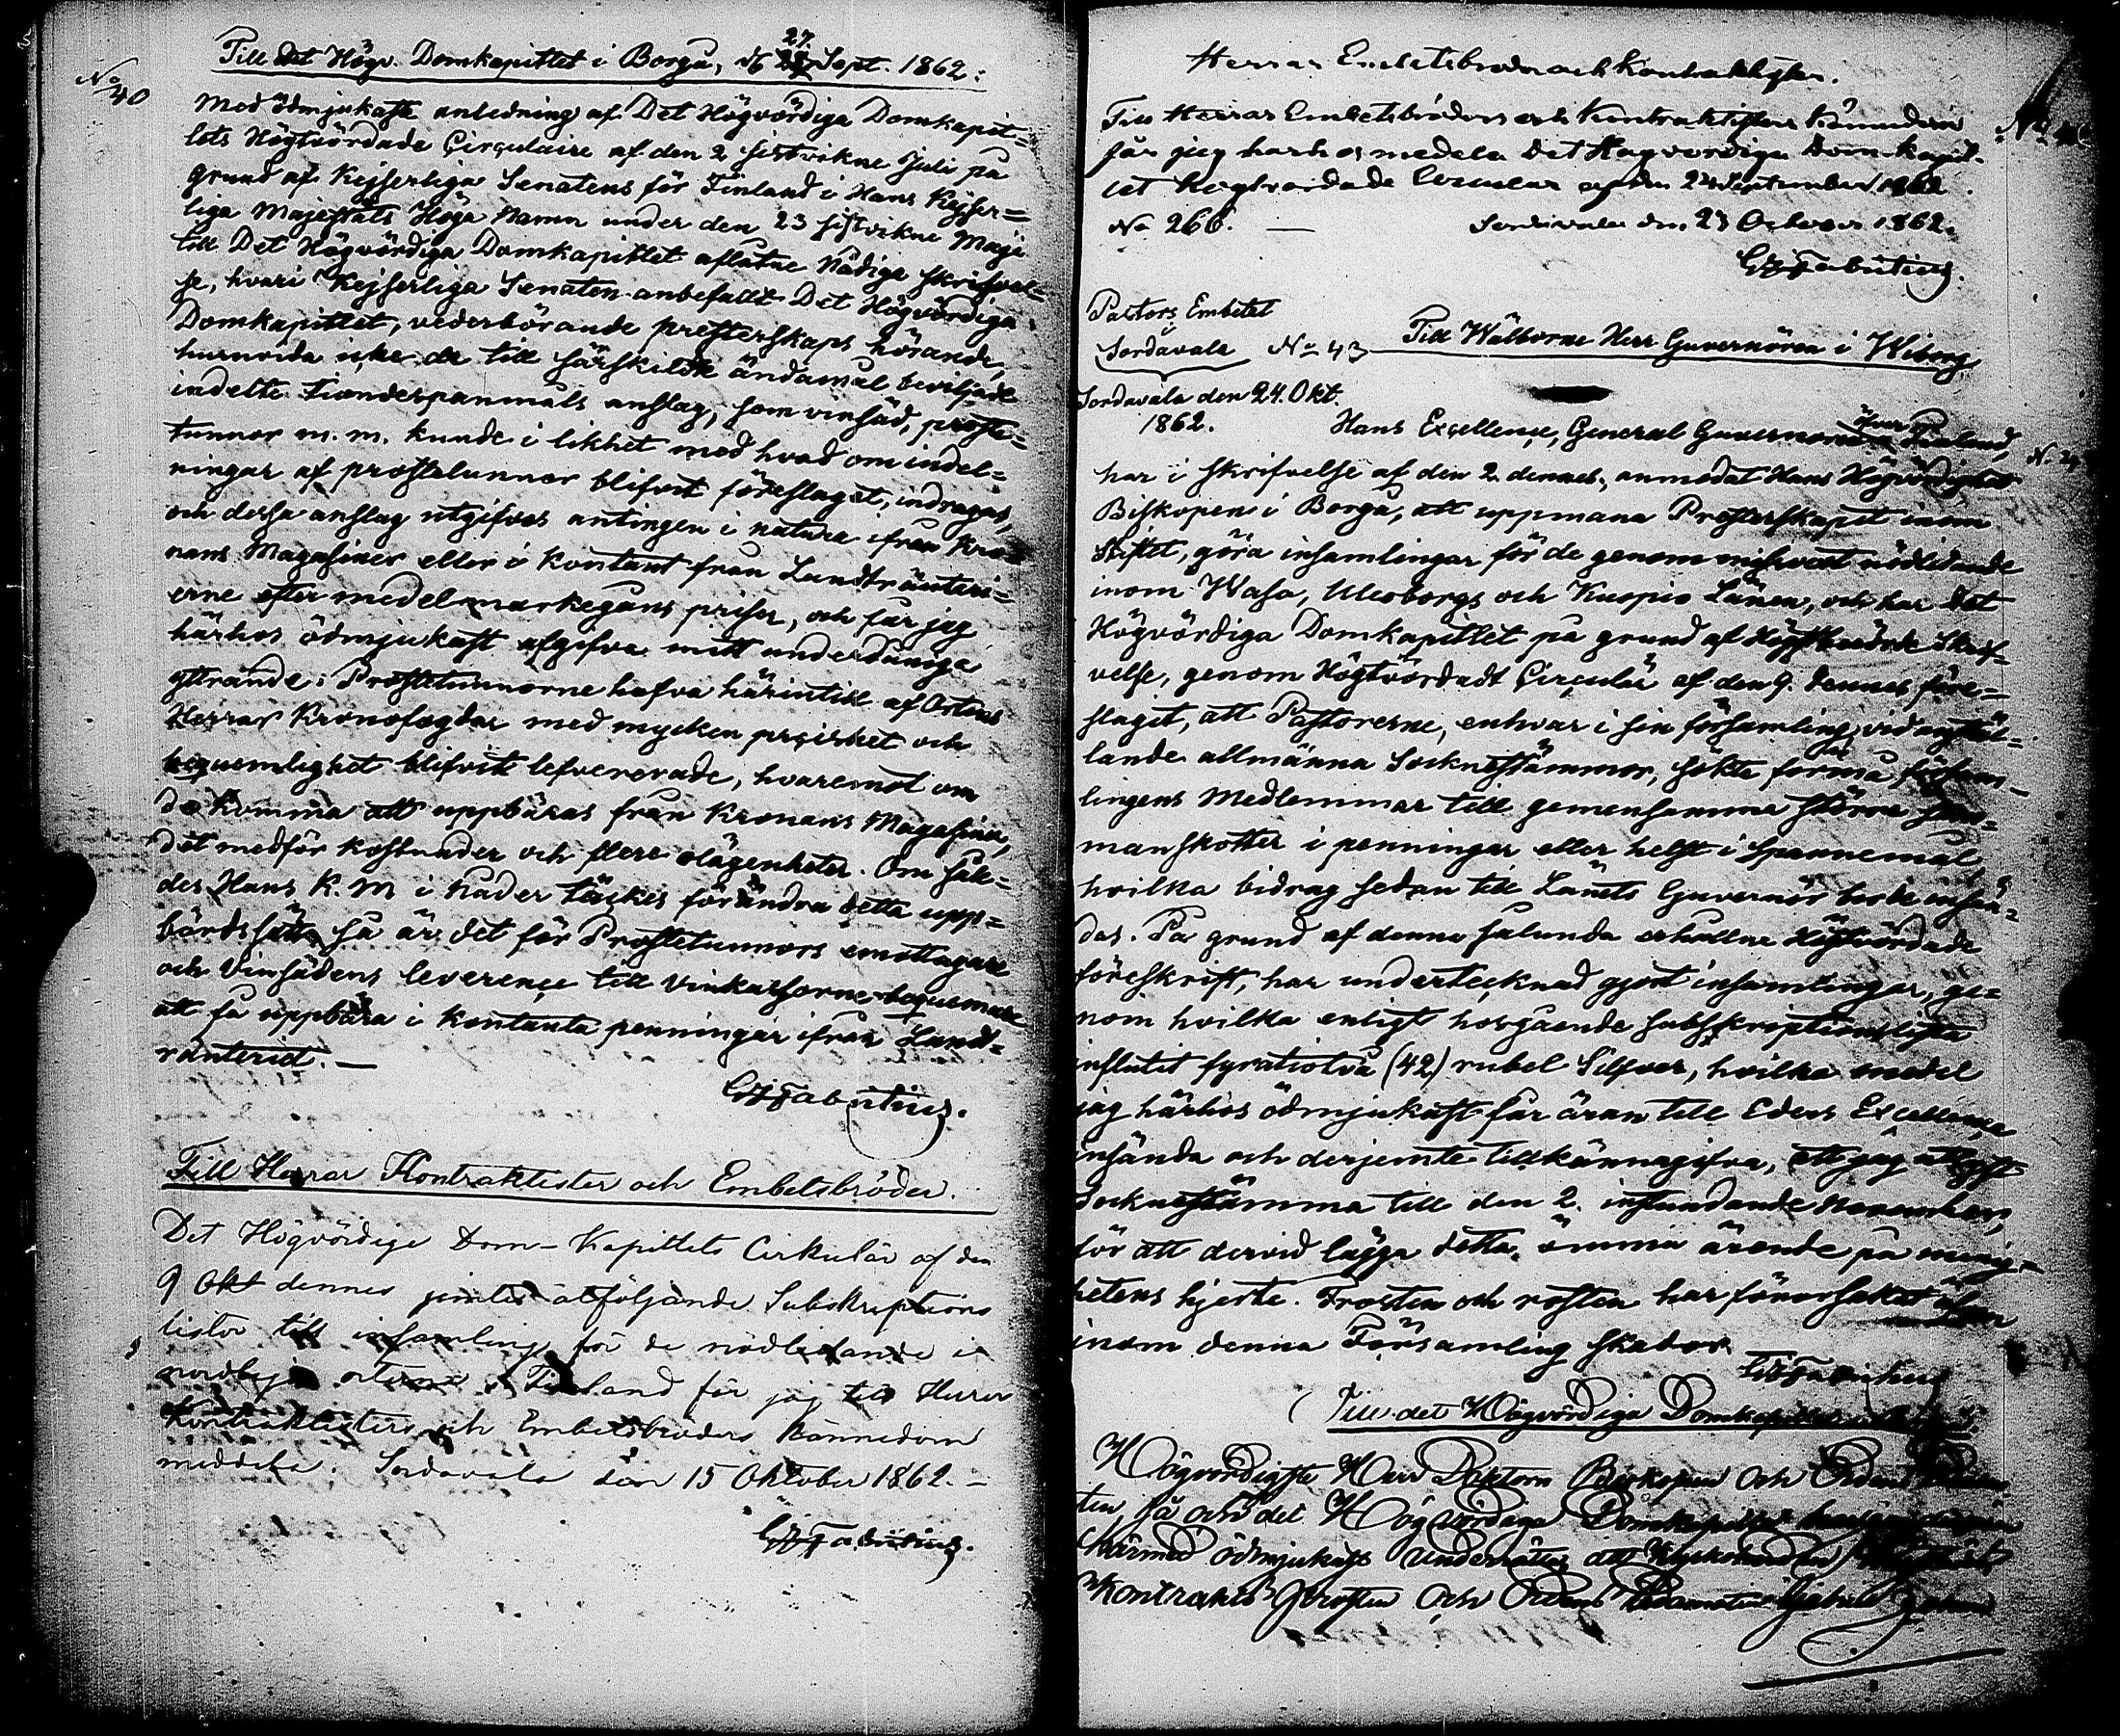 No 40
Till det Högv. Domkapitlet i Borgå, d. 27. Sept. 1862.
Med ödmjukaste anledning af Det Högvördiga Domkapit=
lets Högtvördade Circulaire af den 2 sistvikne Juli på
grund af Kejserliga Senatens för Finland i Hans Kejser=
liga Majestäts Höga Namn under den 23 sistvikne Maji
till Det Högvördiga Domkapitlet aflåtne Nådiga skrifvel=
se, hvari Kejserliga Senaten anbefallt Det Högvördiga
Domkapitlet, vederbörande presterskaps hörande,
huruvida icke de till särskildte ändamål beviljade
indelte Tiondespanmåls anslag, som vinsäd, proste=
tunnor m. m. kunde i likhet med hvad om indel=
ningar af prostetunnor blifvit föreslaget, indragas,
och dessa anslag utgifvas antingen i natura ifrån Kro=
nans Magasiner eller i kontant från Landtränteri=
erne efter medelmarkegångs priser, och får jag
härhos ödmjukast afgifva mitt underdåniga
yttrande: Prostetunnorne hafva härintill af Ortens
Herrar Kronofogdar med mycken precishet och
beqvemlighet blifvit lefvererade, hvaremot om
de komma att uppbäras från Kronans Magasiner,
det medför kostnader och flere olägenheter. Om såle=
des Hans K. M i Nåder täckes förändra detta upp=
bördssätt, så är det för Prostetunnors emottagare
och Vinsädens leverence till Vinkassorne beqvemare
att få uppbära i kontanta penningar ifrån Land=
ränteriet. —
G J Fabritius.
Till Herrar Kontraktister och Embetsbröder.
Det Högvördige Dom-Kapitlets Cirkulär af den
9 Okt dennes jemte åtföljande Subskriptions
listor till insamling för de nödlidande i
nordliga orterna i Finland får jag till Herrar
Kontraktisters och Embetsbröders kännedom
meddela. Sordavala den 15 Oktober 1862. —
G J Fabritius.
Herrar Embetsbröder och Kontraktister.
Till Herrar Embetsbröders och Kontraktisters kännedom
får jag härhos meddela Det Högvördiga Domkapit-
let Högtvördade Circulär af den 24 September 1862
No 266. — Sordavala den 23 October 1862.
G J Fabritius.
Pastors Embetet
Sordavala No 43 Till Wälborne Herr Guvernören i Wiborg
Sordavala den 24. Okt.
1862. Hans Excellence, General Guvernören öfver Finland,
har i skrifvelse af den 2. dennes, anmodat Hans Högvördighet
Biskopen i Borgå, att uppmana Presterskapet inom
Stiftet, göra insamlingar för de genom missvext nödlidande
inom Wasa, Uleåborgs och Kuopio Länen, och har Det
Högvördiga Domkapitlet på grund af Höstbemälde Skrif=
velse, genom Högtvördadt Circulär af den 9. dennes före=
slagit, att Pastorerne, enhvar i sin församling, vid anstäl=
lande allmänna Socknestämmor, sökte förmå församm=
lingens Medlemmar till gemensamma större sam=
manskotter i penningar eller helst i Spannemål,
hvilka bidrag sedan till Länets Guvernör borde insän=
das. På grund af denna sålunda erhållna Högtvördade
föreskrift, har undertecknad gjort insamlingar, ge=
nom hvilka enligt hosgående subskriptionslista
influtit fyratiotvå (42) rubel Silfver, hvilka medel
jag härhos ödmjukast får äran till Eders Excellence
insända och derjemte tillkännagifva, att jag utlyst
Socknestämma till den 2. instundande November,
för att dervid lägga detta ömma ärende på menig=
hetens hjerta. Frosten och rosten har förorsakat äfven
inom denna Församling skador.
G J Fabritius
Till det Högvördiga Domkapitlet
Högvördigste Herr Doktorn Biskopen och
så ock det Högvördiga Domkapitlet
härmed ödmjukast underrättas att Kyrkoherden
Kontrakts Prosten och